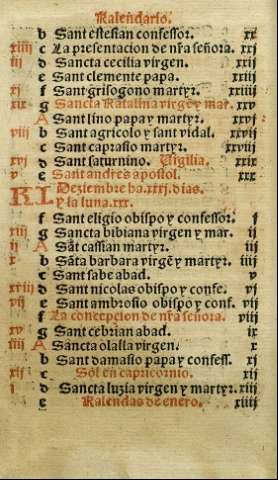 Kalendario.
b Sant estefian confessor. xx
xiiij c La presentacion de nr̃a señora. xxj
iij d Sancta cecilia virgen. xxij
e Sant clemente papa. xxiij
xj f Sant grisogono martyr. xxiiij
xix g Sancta Katalina virgẽ y mar. xxv
A Sant lino papa y martyr. xxvj
viij b Sant agricolo y sant vidal. xxvij
c Sant caprasio martyr. xxviij
xvj d Sant saturnino. Vigilia. xxix
v e Sant andres apostol. xxx
KL Deziembre ha .xxxj. dias.
y la luna .xxx.
f Sant eligio obispo y confessor. j
xiij g Sancta bibiana virgen y mar. ij
ij A Sãt cassian martyr. iij
x b Sãta barbara virgẽ y martyr. iiij
c Sant sabe abad. v
xviij d Sant nicolas obispo y confe. vj
vij e Sant ambrosio obispo y conf. vij
f La concepcion de nr̃a señora. viij
xv g Sant cebrian abad. ix
iiij A Sancta olalla virgen. x
b Sant damasio papa y confess. xj
xij c Sol en capricornio. xij
j d Sancta luzia virgen y martyr. xiij
e Kalendas de enero. xiiij